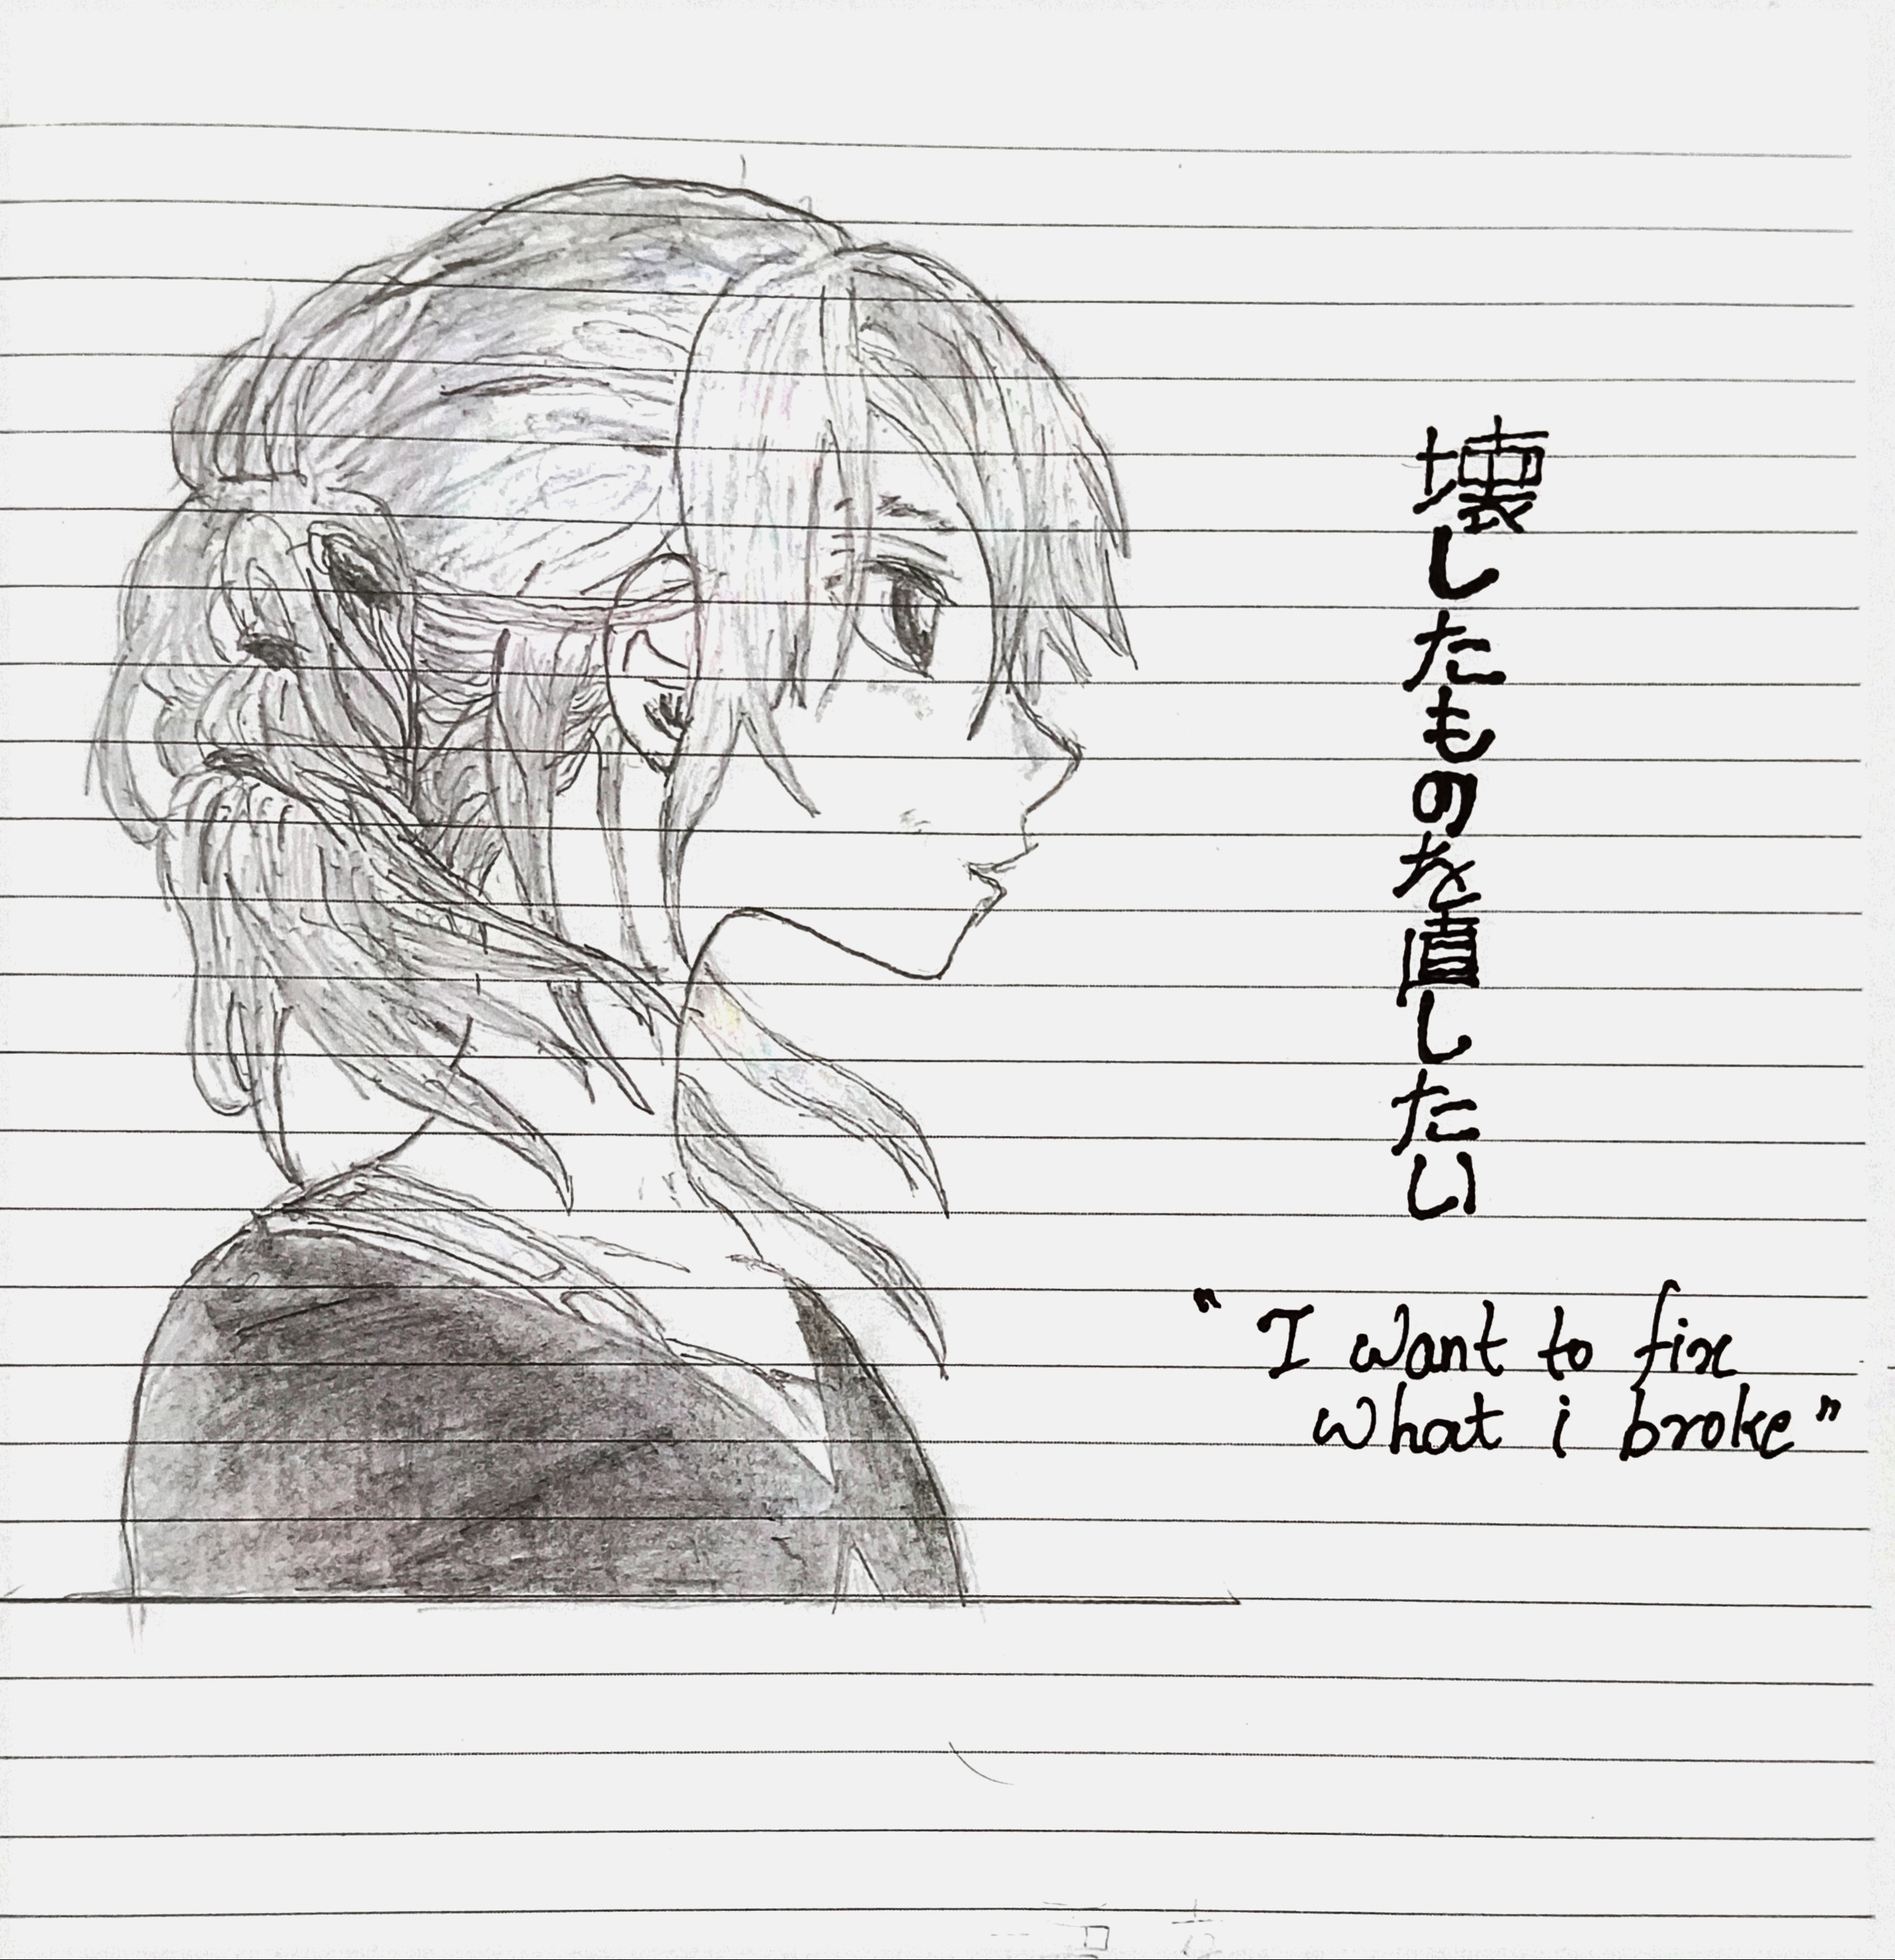 壊したものを直したい
" I want to fix
what i broke "